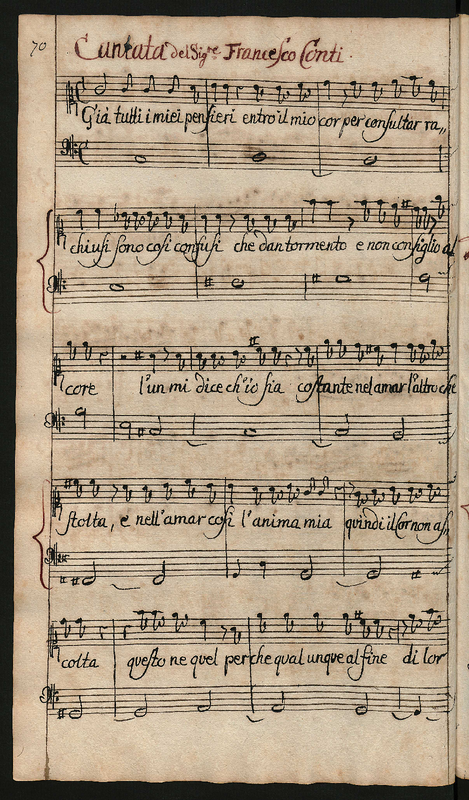 70 Cantata del Sig.re Francesco Conti
Già tutti i miei pensieri entro il mio cor per consultar ra„
chiusi sono così confusi che dan tormento e non consiglio al
core l'un mi dice ch'io sia costante nel amar l'altro che
stolta, e nell'amar così l'anima mia quindi il Cor non as„
colta questo ne quel perche qualunque al fine di lor